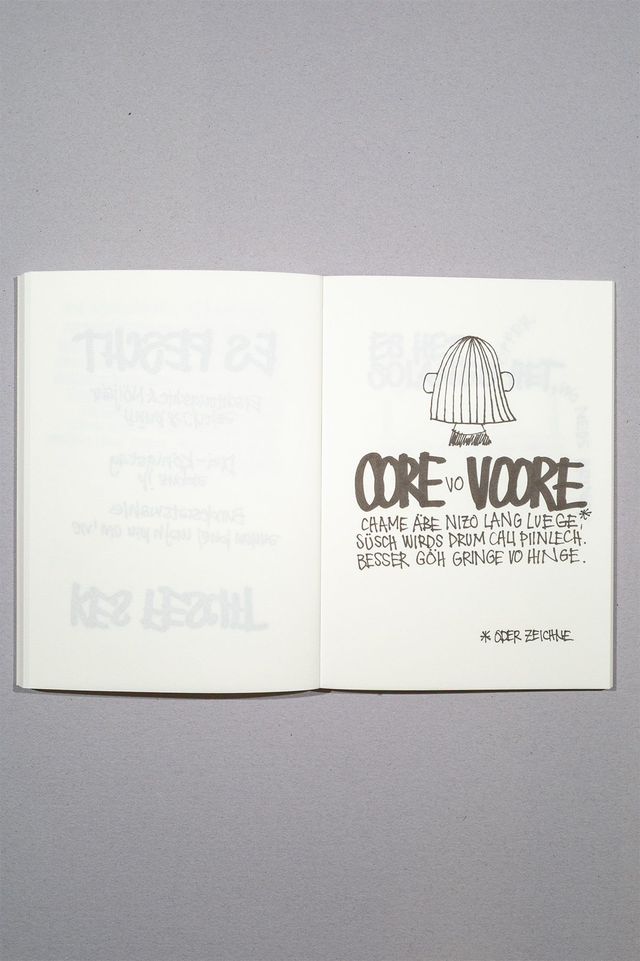 OORE VO VOORE
CHAME ÄBE NIZO LANG LUEGE,*
SÜSCH WIRDS DRUM CHLI PIINLECH.
BESSER GÖH GRINGE VO HINGE.
* ODER ZEICHNE